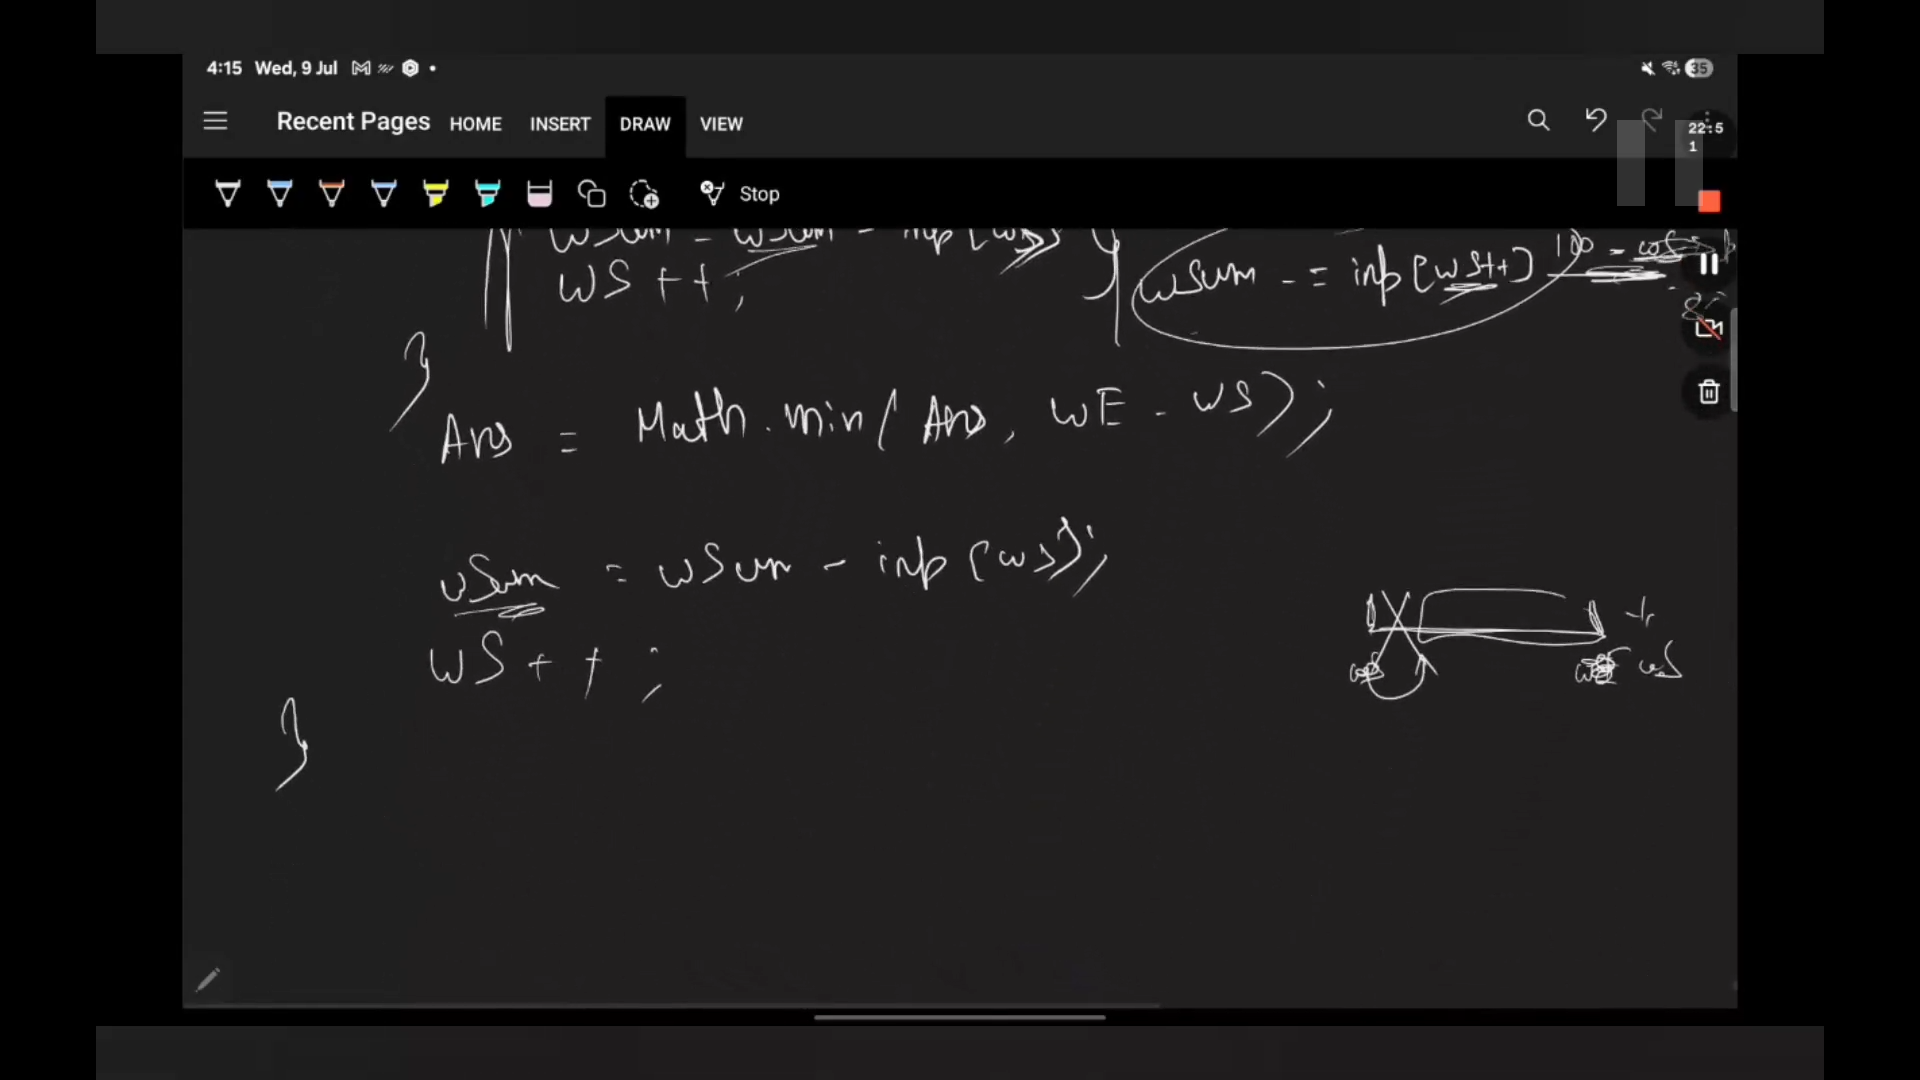 4:15 Wed, 9 Jul 35
Recent Pages HOME INSERT DRAW VIEW
22:5
1
Stop
wSum = wSum - inp[ws]
WS++;
wSum -= inp[ws++] 100
}
Ans = Math.min(Ans, WE - WS);
wSum = wSum - inp[ws];
WS++;
ws ws
}